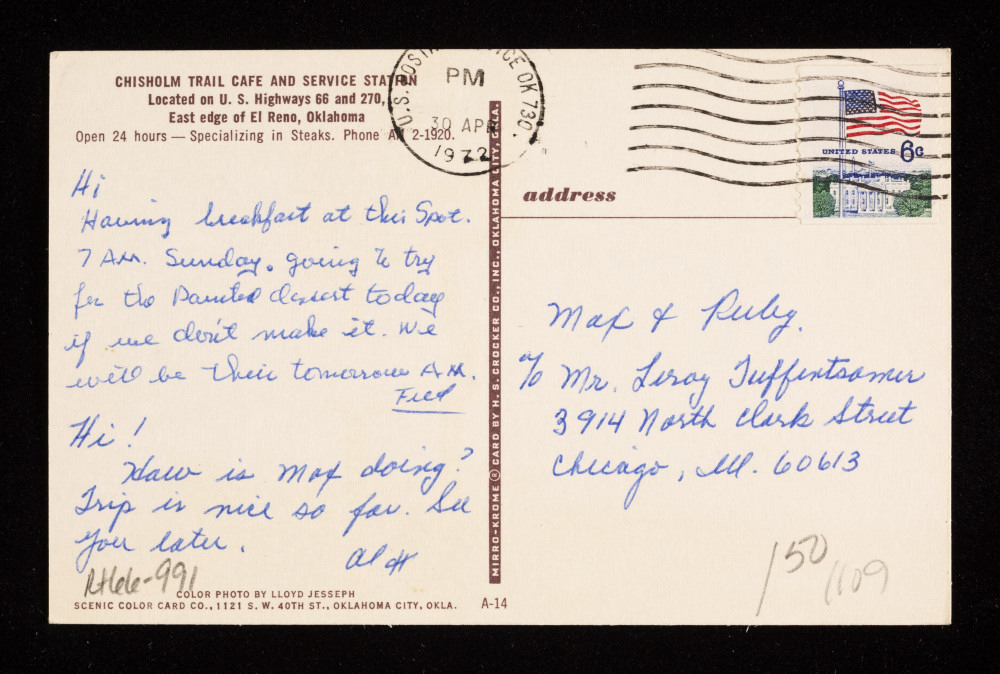 CHISHOLM TRAIL CAFE AND SERVICE STATION
Located on U. S. Highways 66 and 270,
East edge of El Reno, Oklahoma
Open 24 hours — Specializing in Steaks. Phone AN 2-1920.
U.S. POSTAL SERVICE OK 730
PM
30 APR
1972
UNITED STATES 6c
address
Hi
Having breakfast at this Spot.
7 AM. Sunday. going to try
for the Painted dessert today
if we don't make it. We
will be their tomorrow AM.
Fred
Hi!
How is Max doing?
Trip is nice so far. See
you later.
Al H
Max & Ruby.
c/o Mr. Leroy Tuffentsamer
3914 North Clark Street
Chicago, Ill. 60613
MIRRO-KROME ® CARD BY H. S. CROCKER CO., INC., OKLAHOMA CITY, OKLA.
Rt66-991
COLOR PHOTO BY LLOYD JESSEPH
SCENIC COLOR CARD CO., 1121 S. W. 40TH ST., OKLAHOMA CITY, OKLA.
A-14
150
1109